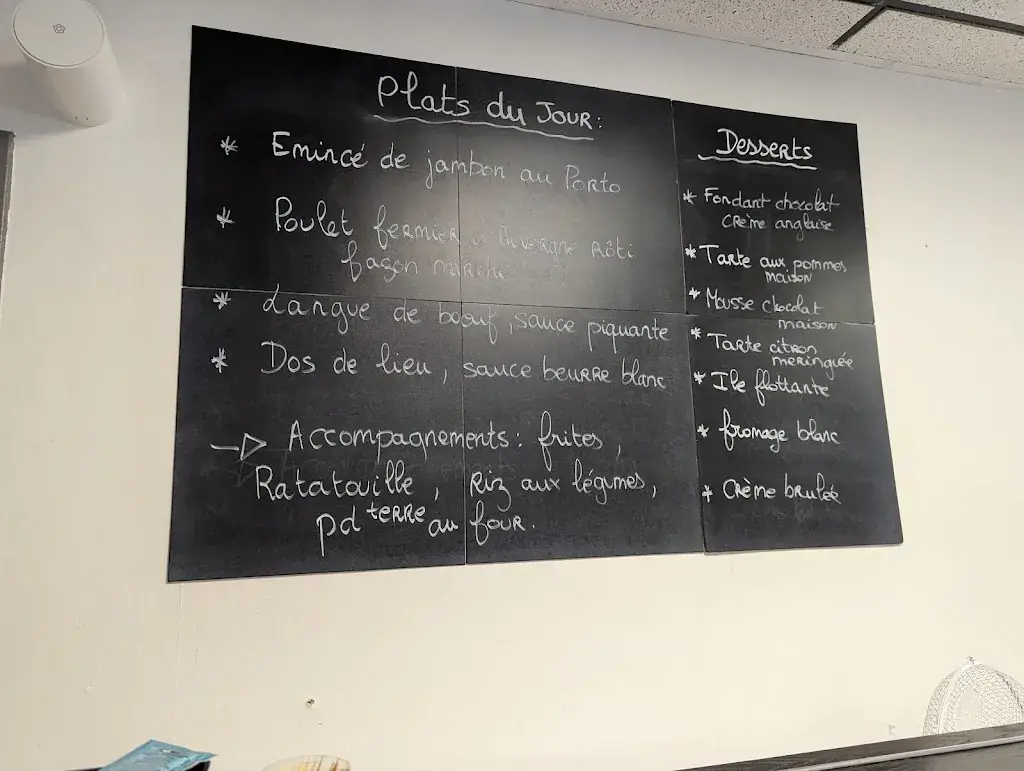 Plats du Jour:
* Emincé de jambon au Porto
* Poulet fermier d'Auvergne Rôti
façon marché
* Langue de bœuf, sauce piquante
* Dos de lieu, sauce beurre blanc
→ Accompagnements: frites,
Ratatouille, Riz aux légumes,
pd terre au four.
Desserts
* Fondant chocolat
crème anglaise
* Tarte aux pommes
maison
* Mousse chocolat
maison
* Tarte citron
meringuée
* Ile flottante
* fromage blanc
* Crème brulée